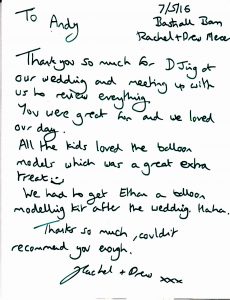 To Andy
7/5/16
Bastnall Barn
Rachel + Drew Mercer
Thankyou so much for DJing at
our wedding and meeting up with
us to review everything.
You were great fun and we loved
our day.
All the kids loved the balloon
models which was a great extra
treat
We had to get Ethan a balloon
modelling kit after the wedding. Haha.
Thanks so much, couldn't
recommend you enough.
Rachel + Drew xxx